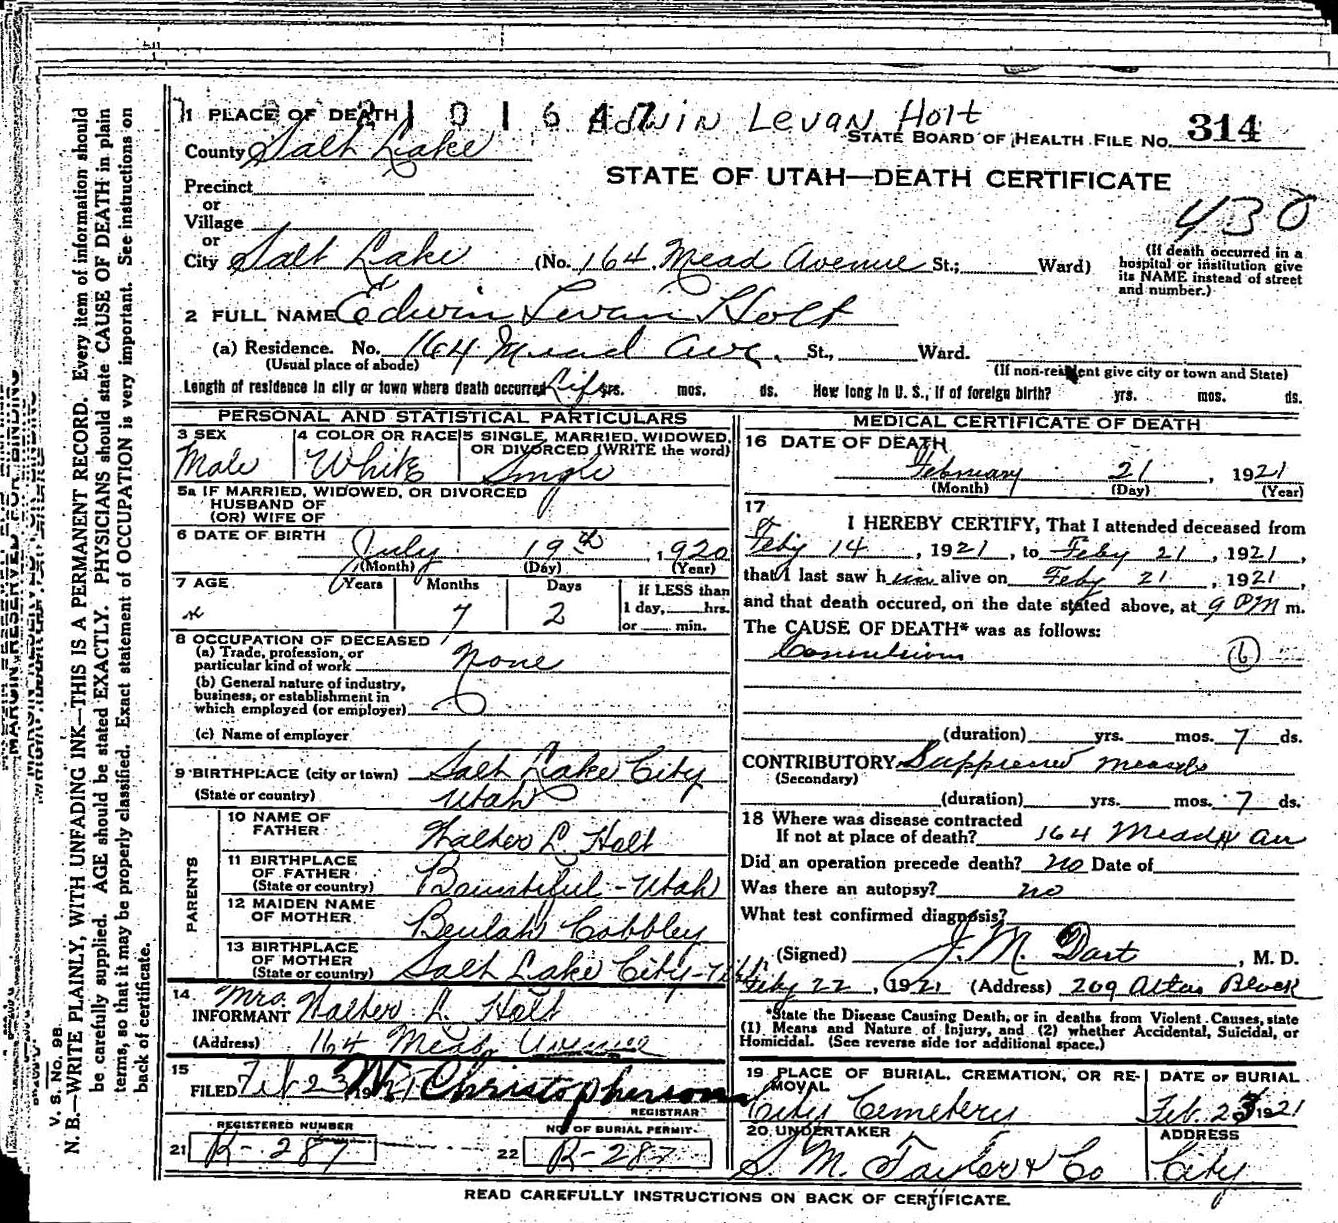 1 PLACE OF DEATH 2 1 0 1 6 4 7 Edwin Levan Holt
STATE BOARD OF HEALTH FILE No. 314
County Salt Lake
STATE OF UTAH—DEATH CERTIFICATE
Precinct
or
Village
430
or
City Salt Lake (No. 164 Mead Avenue St.; Ward)
(If death occurred in a
hospital or institution give
its NAME instead of street
and number.)
2 FULL NAME Edwin Levan Holt
(a) Residence. No. 164 Mead Ave. St., Ward.
(Usual place of abode)
(If non-resident give city or town and State)
Length of residence in city or town where death occurred Life yrs. mos. ds. How long in U. S., if of foreign birth? yrs. mos. ds.
PERSONAL AND STATISTICAL PARTICULARS
3 SEX 4 COLOR OR RACE 5 SINGLE, MARRIED, WIDOWED,
OR DIVORCED (WRITE the word)
Male White Single
5a IF MARRIED, WIDOWED, OR DIVORCED
HUSBAND OF
(OR) WIFE OF
6 DATE OF BIRTH
July 19th, 1920
(Month) (Day) (Year)
7 AGE Years Months Days If LESS than
1 day, hrs.
or min.
x 7 2
8 OCCUPATION OF DECEASED
(a) Trade, profession, or
particular kind of work None
(b) General nature of industry,
business, or establishment in
which employed (or employer)
(c) Name of employer
9 BIRTHPLACE (city or town) Salt Lake City
(State or country) Utah
PARENTS
10 NAME OF
FATHER Walter L. Holt
11 BIRTHPLACE
OF FATHER
(State or country) Bountiful - Utah
12 MAIDEN NAME
OF MOTHER Beulah Cobbley
13 BIRTHPLACE
OF MOTHER
(State or country) Salt Lake City - Utah
14
INFORMANT Mrs. Walter L. Holt
(Address) 164 Mead Avenue
15
FILED Feb 23 1921 Christopherson
REGISTRAR
REGISTERED NUMBER
21 R-287
NO. OF BURIAL PERMIT
22 R-287
MEDICAL CERTIFICATE OF DEATH
16 DATE OF DEATH
February 21, 1921
(Month) (Day) (Year)
17
I HEREBY CERTIFY, That I attended deceased from
Feby 14, 1921, to Feby 21, 1921,
that I last saw him alive on Feby 21, 1921,
and that death occured, on the date stated above, at 9 PM m.
The CAUSE OF DEATH* was as follows:
Convulsions 6
(duration) yrs. mos. 7 ds.
CONTRIBUTORY Suppressed measles
(Secondary)
(duration) yrs. mos. 7 ds.
18 Where was disease contracted
If not at place of death? 164 Mead Av
Did an operation precede death? no Date of
Was there an autopsy? no
What test confirmed diagnosis?
(Signed) J. M. Dart, M. D.
Feby 22, 1921 (Address) 209 Atlas Block
*State the Disease Causing Death, or in deaths from Violent Causes, state
(1) Means and Nature of Injury, and (2) whether Accidental, Suicidal, or
Homicidal. (See reverse side for additional space.)
19 PLACE OF BURIAL, CREMATION, OR RE-
MOVAL
City Cemetery
DATE OF BURIAL
Feb. 23 1921
20 UNDERTAKER
S. M. Taylor & Co
ADDRESS
City
READ CAREFULLY INSTRUCTIONS ON BACK OF CERTIFICATE.
V. S. No. 98
N. B.—WRITE PLAINLY, WITH UNFADING INK—THIS IS A PERMANENT RECORD. Every item of information should
be carefully supplied. AGE should be stated EXACTLY. PHYSICIANS should state CAUSE OF DEATH in plain
terms, so that it may be properly classified. Exact statement of OCCUPATION is very important. See instructions on
back of certificate.
MARGIN RESERVED FOR BINDING